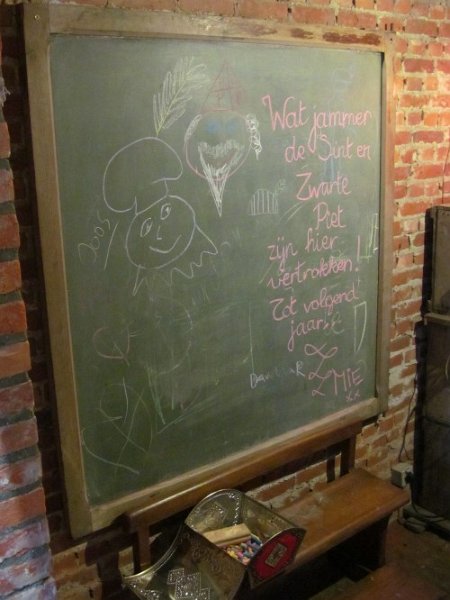 Wat jammer
de Sint en
Zwarte
Piet
zijn hier
vertrokken!
Tot volgend
jaar!
MIE
xx
2005